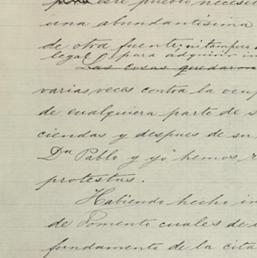 este pueblo necesi
una abundantísima
de otra fuente; ni tampoco
legal para adquirir
Las cosas quedaron
varias veces contra la
de cualquiera parte de s
ciendas y despues de su
Dn Pablo y yó hemos
protestas.
Habiendo hecho in
de Fomento cuales de
fundamento de la cita